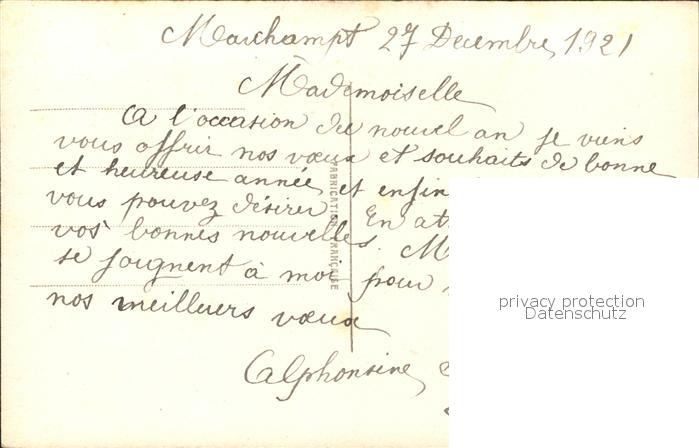 Marchampt 27 Decembre 1921
Mademoiselle
A l'occasion du nouvel an je viens
vous offrir nos vœux et souhaits de bonne
et heureuse année, et enfin
vous pouvez désirer. En at
vos bonnes nouvelles. M
se joignent à moi pour
nos meilluers vœux
Alphonsine
FABRICATION FRANÇAISE
privacy protection
Datenschutz